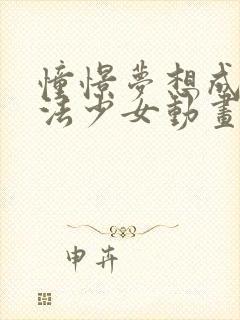 憧憬夢想成
法少女動畫
申卉